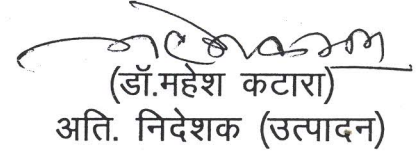 (डॉ.महेश कटारा)
अति. निदेशक (उत्पादन)